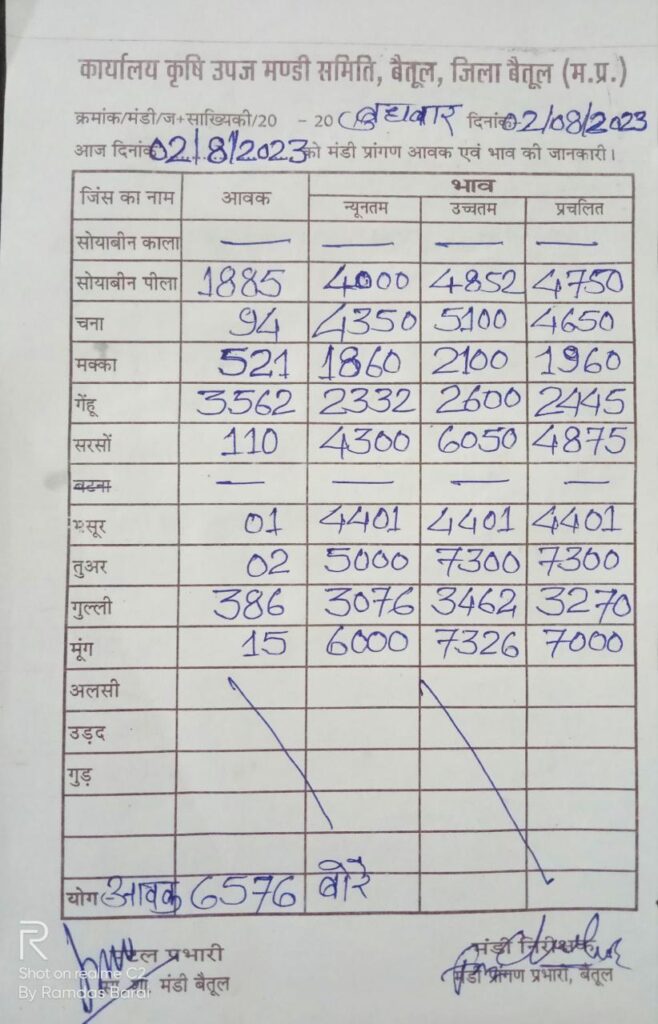 कार्यालय कृषि उपज मण्डी समिति, बैतूल, जिला बैतूल (म.प्र.)
क्रमांक/मंडी/ज+साख्यिकी/20 - 20 बुधवार दिनांक 02/08/2023
आज दिनांक 02/8/2023 को मंडी प्रांगण आवक एवं भाव की जानकारी।
जिंस का नाम आवक भाव
न्यूनतम उच्चतम प्रचलित
सोयाबीन काला — — — —
सोयाबीन पीला 1885 4000 4852 4750
चना 94 4350 5100 4650
मक्का 521 1860 2100 1960
गेंहू 3562 2332 2600 2445
सरसों 110 4300 6050 4875
बटना — — — —
मसूर 01 4401 4401 4401
तुअर 02 5000 7300 7300
गुल्ली 386 3076 3462 3270
मूंग 15 6000 7326 7000
अलसी
उड़द
गुड़
योग आवक 6576 बोरे
प्रभारी मंडी निरीक्षक
मंडी बैतूल मंडी प्रांगण प्रभारी, बैतूल
R
Shot on realme C2
By Ramdas Barai